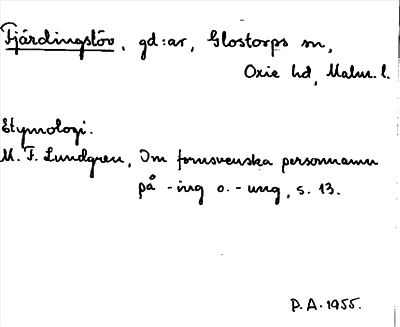 Fjärdingslöv, gd:ar, Glostorps sn,
Oxie hd, Malm. l.
Etymologi.
M. F. Lundgren, Om fornsvenska personnamn
på -ing o. -ung, s. 13.
P.A. 1955.